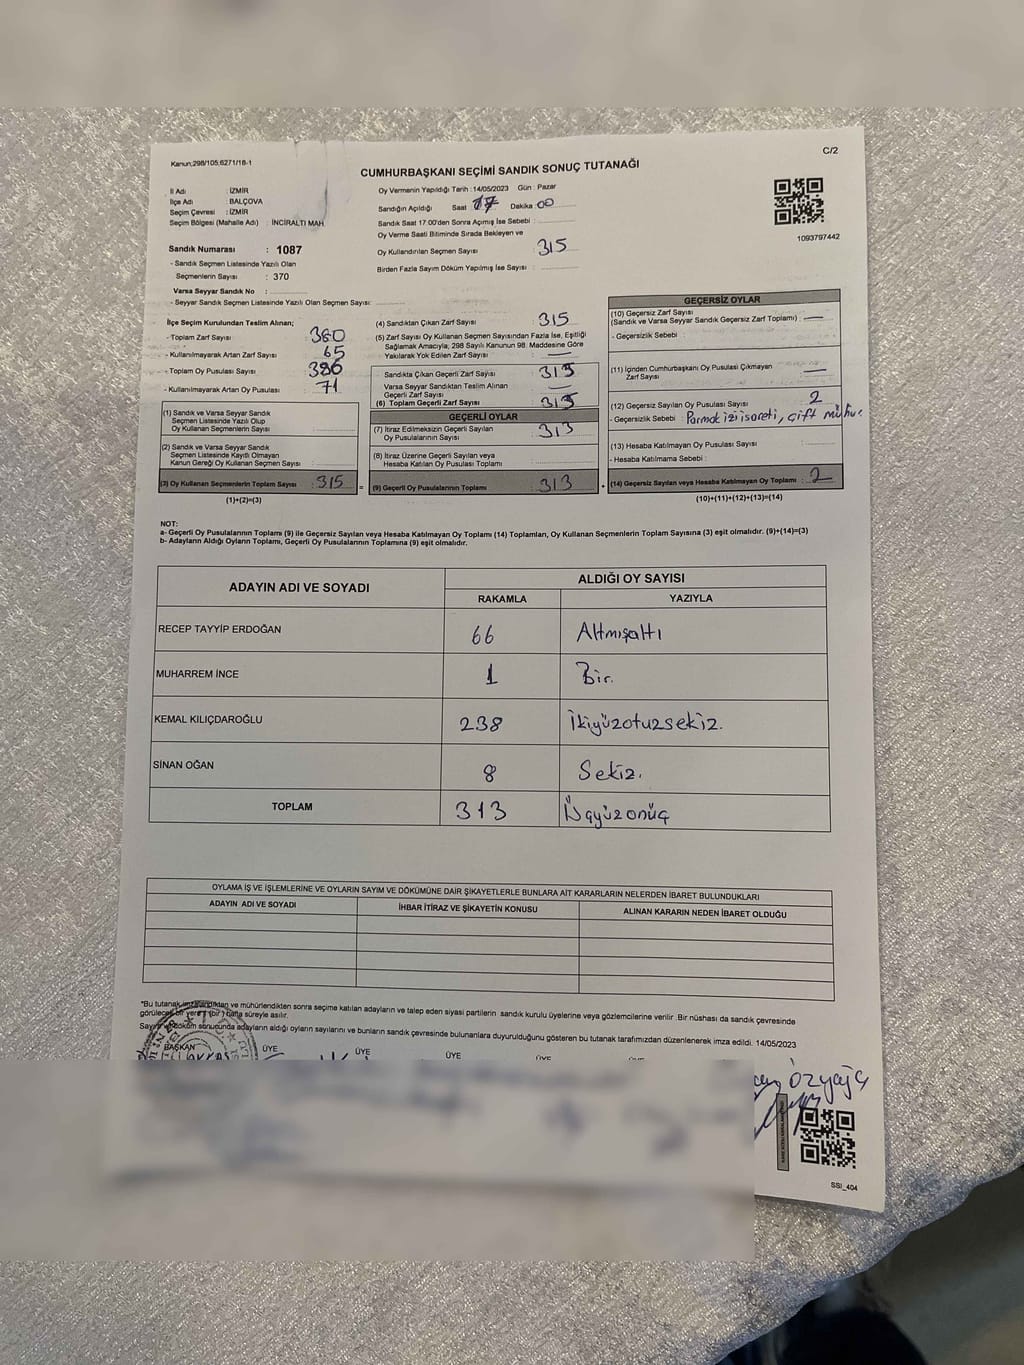 Kanun:298/105,6271/18-1
C/2
CUMHURBAŞKANI SEÇİMİ SANDIK SONUÇ TUTANAĞI
İl Adı : İZMİR
İlçe Adı : BALÇOVA
Seçim Çevresi : İZMİR
Seçim Bölgesi (Mahalle Adı) : İNCİRALTI MAH.
Sandık Numarası : 1087
- Sandık Seçmen Listesinde Yazılı Olan
Seçmenlerin Sayısı : 370
Varsa Seyyar Sandık No :
- Seyyar Sandık Seçmen Listesinde Yazılı Olan Seçmen Sayısı:
Oy Vermenin Yapıldığı Tarih :14/05/2023 Gün : Pazar
Sandığın Açıldığı Saat 17 Dakika :00
Sandık Saat 17.00'den Sonra Açılmış İse Sebebi :
Oy Verme Saati Bitiminde Sırada Bekleyen ve
Oy Kullandırılan Seçmen Sayısı : 315
Birden Fazla Sayım Döküm Yapılmış İse Sayısı :
1093797442
İlçe Seçim Kurulundan Teslim Alınan;
- Toplam Zarf Sayısı : 380
- Kullanılmayarak Artan Zarf Sayısı : 65
- Toplam Oy Pusulası Sayısı : 386
- Kullanılmayarak Artan Oy Pusulası : 71
(1) Sandık ve Varsa Seyyar Sandık
Seçmen Listesinde Yazılı Olup
Oy Kullanan Seçmenlerin Sayısı :
(2) Sandık ve Varsa Seyyar Sandık
Seçmen Listesinde Kayıtlı Olmayan
Kanun Gereği Oy Kullanan Seçmen Sayısı :
(3) Oy Kullanan Seçmenlerin Toplam Sayısı : 315
(1)+(2)=(3)
(4) Sandıktan Çıkan Zarf Sayısı : 315
(5) Zarf Sayısı Oy Kullanan Seçmen Sayısından Fazla İse, Eşitliği
Sağlamak Amacıyla, 298 Sayılı Kanunun 98. Maddesine Göre
Yakılarak Yok Edilen Zarf Sayısı : —
- Sandıkta Çıkan Geçerli Zarf Sayısı : 315
Varsa Seyyar Sandıktan Teslim Alınan
Geçerli Zarf Sayısı : —
(6) Toplam Geçerli Zarf Sayısı : 315
GEÇERLİ OYLAR
(7) İtiraz Edilmeksizin Geçerli Sayılan
Oy Pusulalarının Sayısı : 313
(8) İtiraz Üzerine Geçerli Sayılan veya
Hesaba Katılan Oy Pusulası Toplamı :
= (9) Geçerli Oy Pusulalarının Toplamı : 313 +
GEÇERSİZ OYLAR
(10) Geçersiz Zarf Sayısı
(Sandık ve Varsa Seyyar Sandık Geçersiz Zarf Toplamı) : —
- Geçersizlik Sebebi :
(11) İçinden Cumhurbaşkanı Oy Pusulası Çıkmayan
Zarf Sayısı : —
(12) Geçersiz Sayılan Oy Pusulası Sayısı : 2
- Geçersizlik Sebebi : Parmak izi işareti, çift mühür
(13) Hesaba Katılmayan Oy Pusulası Sayısı :
- Hesaba Katılmama Sebebi :
(14) Geçersiz Sayılan veya Hesaba Katılmayan Oy Toplamı : 2
(10)+(11)+(12)+(13)=(14)
NOT:
a- Geçerli Oy Pusulalarının Toplamı (9) ile Geçersiz Sayılan veya Hesaba Katılmayan Oy Toplamı (14) Toplamları, Oy Kullanan Seçmenlerin Toplam Sayısına (3) eşit olmalıdır. (9)+(14)=(3)
b- Adayların Aldığı Oyların Toplamı, Geçerli Oy Pusulalarının Toplamına (9) eşit olmalıdır.
ADAYIN ADI VE SOYADI
ALDIĞI OY SAYISI
RAKAMLA YAZIYLA
RECEP TAYYİP ERDOĞAN 66 Altmışaltı
MUHARREM İNCE 1 Bir.
KEMAL KILIÇDAROĞLU 238 İkiyüzotuzsekiz.
SİNAN OĞAN 8 Sekiz.
TOPLAM 313 Üçyüzonüç
OYLAMA İŞ VE İŞLEMLERİNE VE OYLARIN SAYIM VE DÖKÜMÜNE DAİR ŞİKAYETLERLE BUNLARA AİT KARARLARIN NELERDEN İBARET BULUNDUKLARI
ADAYIN ADI VE SOYADI İHBAR İTİRAZ VE ŞİKAYETİN KONUSU ALINAN KARARIN NEDEN İBARET OLDUĞU
*Bu tutanak imzalandıktan ve mühürlendikten sonra seçime katılan adayların ve talep eden siyasi partilerin sandık kurulu üyelerine veya gözlemcilerine verilir .Bir nüshası da sandık çevresinde
görülecek bir yere 1 (bir) hafta süreyle asılır.
Sayım ve döküm sonucunda adayların aldığı oyların sayılarını ve bunların sandık çevresinde bulunanlara duyurulduğunu gösteren bu tutanak tarafımızdan düzenlenerek imza edildi. 14/05/2023
BAŞKAN ÜYE ÜYE ÜYE ÜYE
Özyağcı
SSI_404